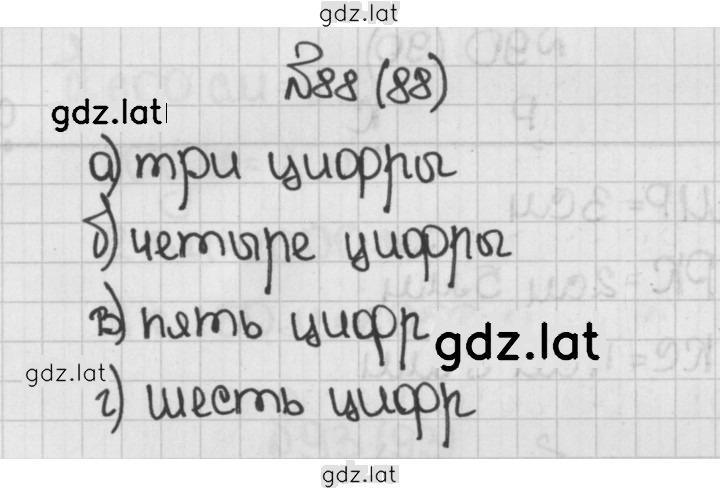 gdz.lat
№88 (88)
gdz.lat
а) три цифры
б) четыре цифры
в) пять цифр
gdz.lat
gdz.lat
г) шесть цифр
gdz.lat